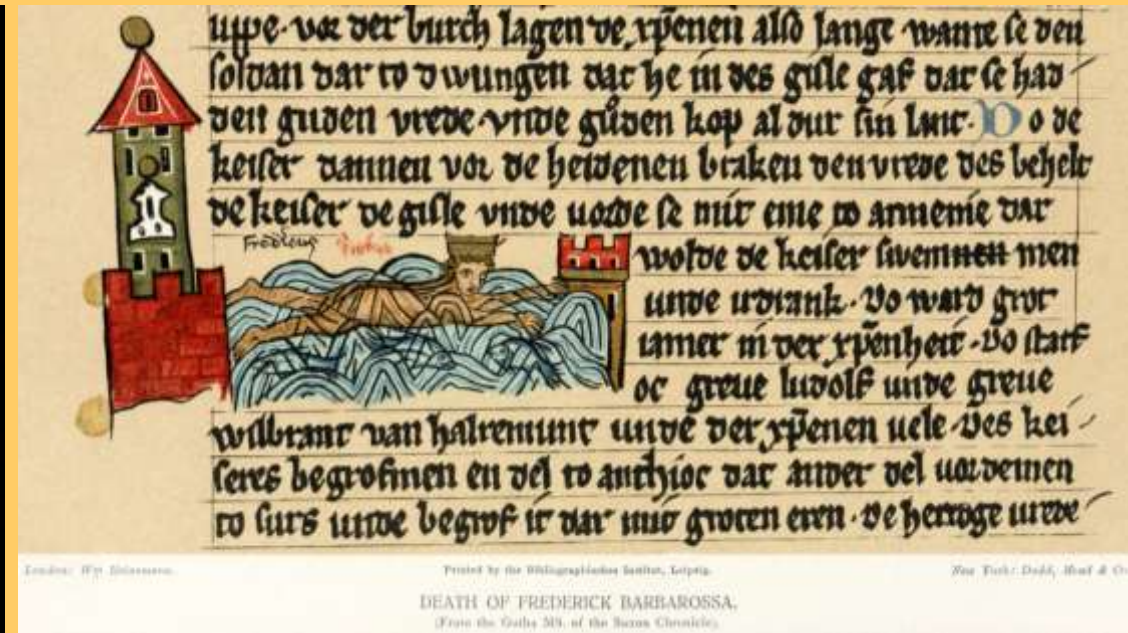 uppe. vor der burch lagen de xp̅enen also lange wante se den
soldan dar to dwungen dat he in des gisle gaf dat se had
den guden vrede vnde gůden kop al dur sin lant. Do de
keiser dannen vor de heidenen braken den vrede des behelt
de keiser de gisle vnde uorde se mit eme to armenie dar
wolde de keiser swemnen men
unde udrank. Do ward grot
iamer in der xp̅enheit. Do starf
oc greue ludolf unde greue
wilbrant van halremunt unde der xp̅enen uele. Des kei
seres begrofmen en del to anthioc dat ander del uordemen
to surs unde begrof it dar mit groten eren. De hertoge urede
London: Wm Heinemann.
Printed by the Bibliographisches Institut, Leipzig.
New York: Dodd, Mead & Co
DEATH OF FREDERICK BARBAROSSA.
(From the Gotha MS. of the Saxon Chronicle).